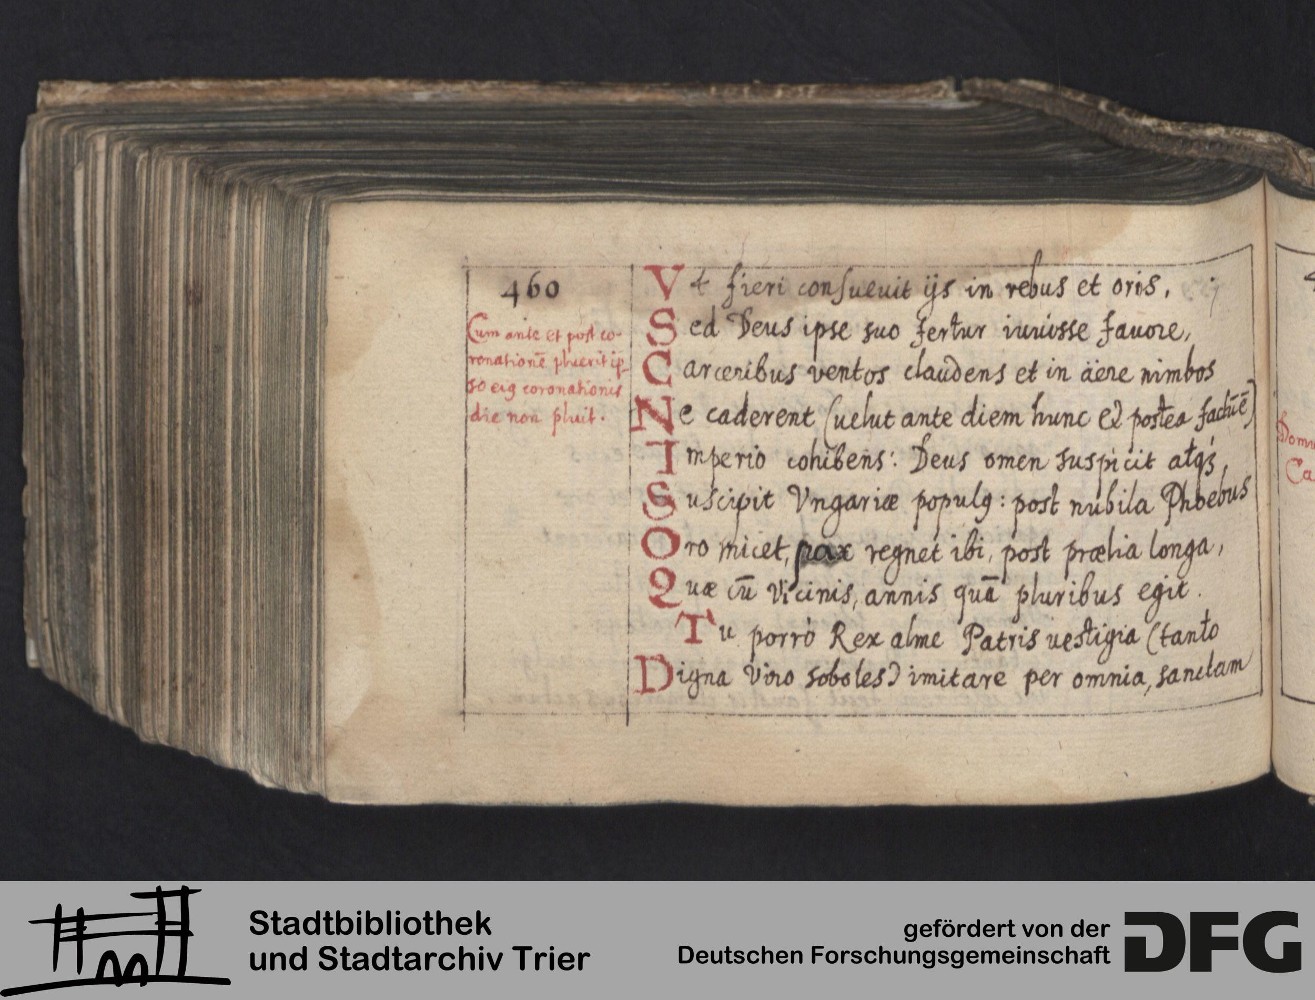 460
Cum ante et post co-
ronationē pluerit ip-
so eiꝰ coronationis
die non pluit.
Vt fieri consueuit ijs in rebus et oris,
Sed Deus ipse suo fertur iuuisse fauore,
Carceribus ventos claudens et in äere nimbos
Ne caderent (uelut ante diem hunc et postea factūē)
Imperio cohibens: Deus omen suspicit atqꝫ,
Suscipit Vngariæ populꝰ: post nubila Phoebus
Oro micet, pax regnet ibi, post prælia longa,
Quæ cū vicinis, annis quā pluribus egit.
Tu porrò Rex alme Patris uestigia (tanto
Digna viro soboles) imitare per omnia, sanctam
Ca
Stadtbibliothek
und Stadtarchiv Trier
gefördert von der
Deutschen Forschungsgemeinschaft
DFG